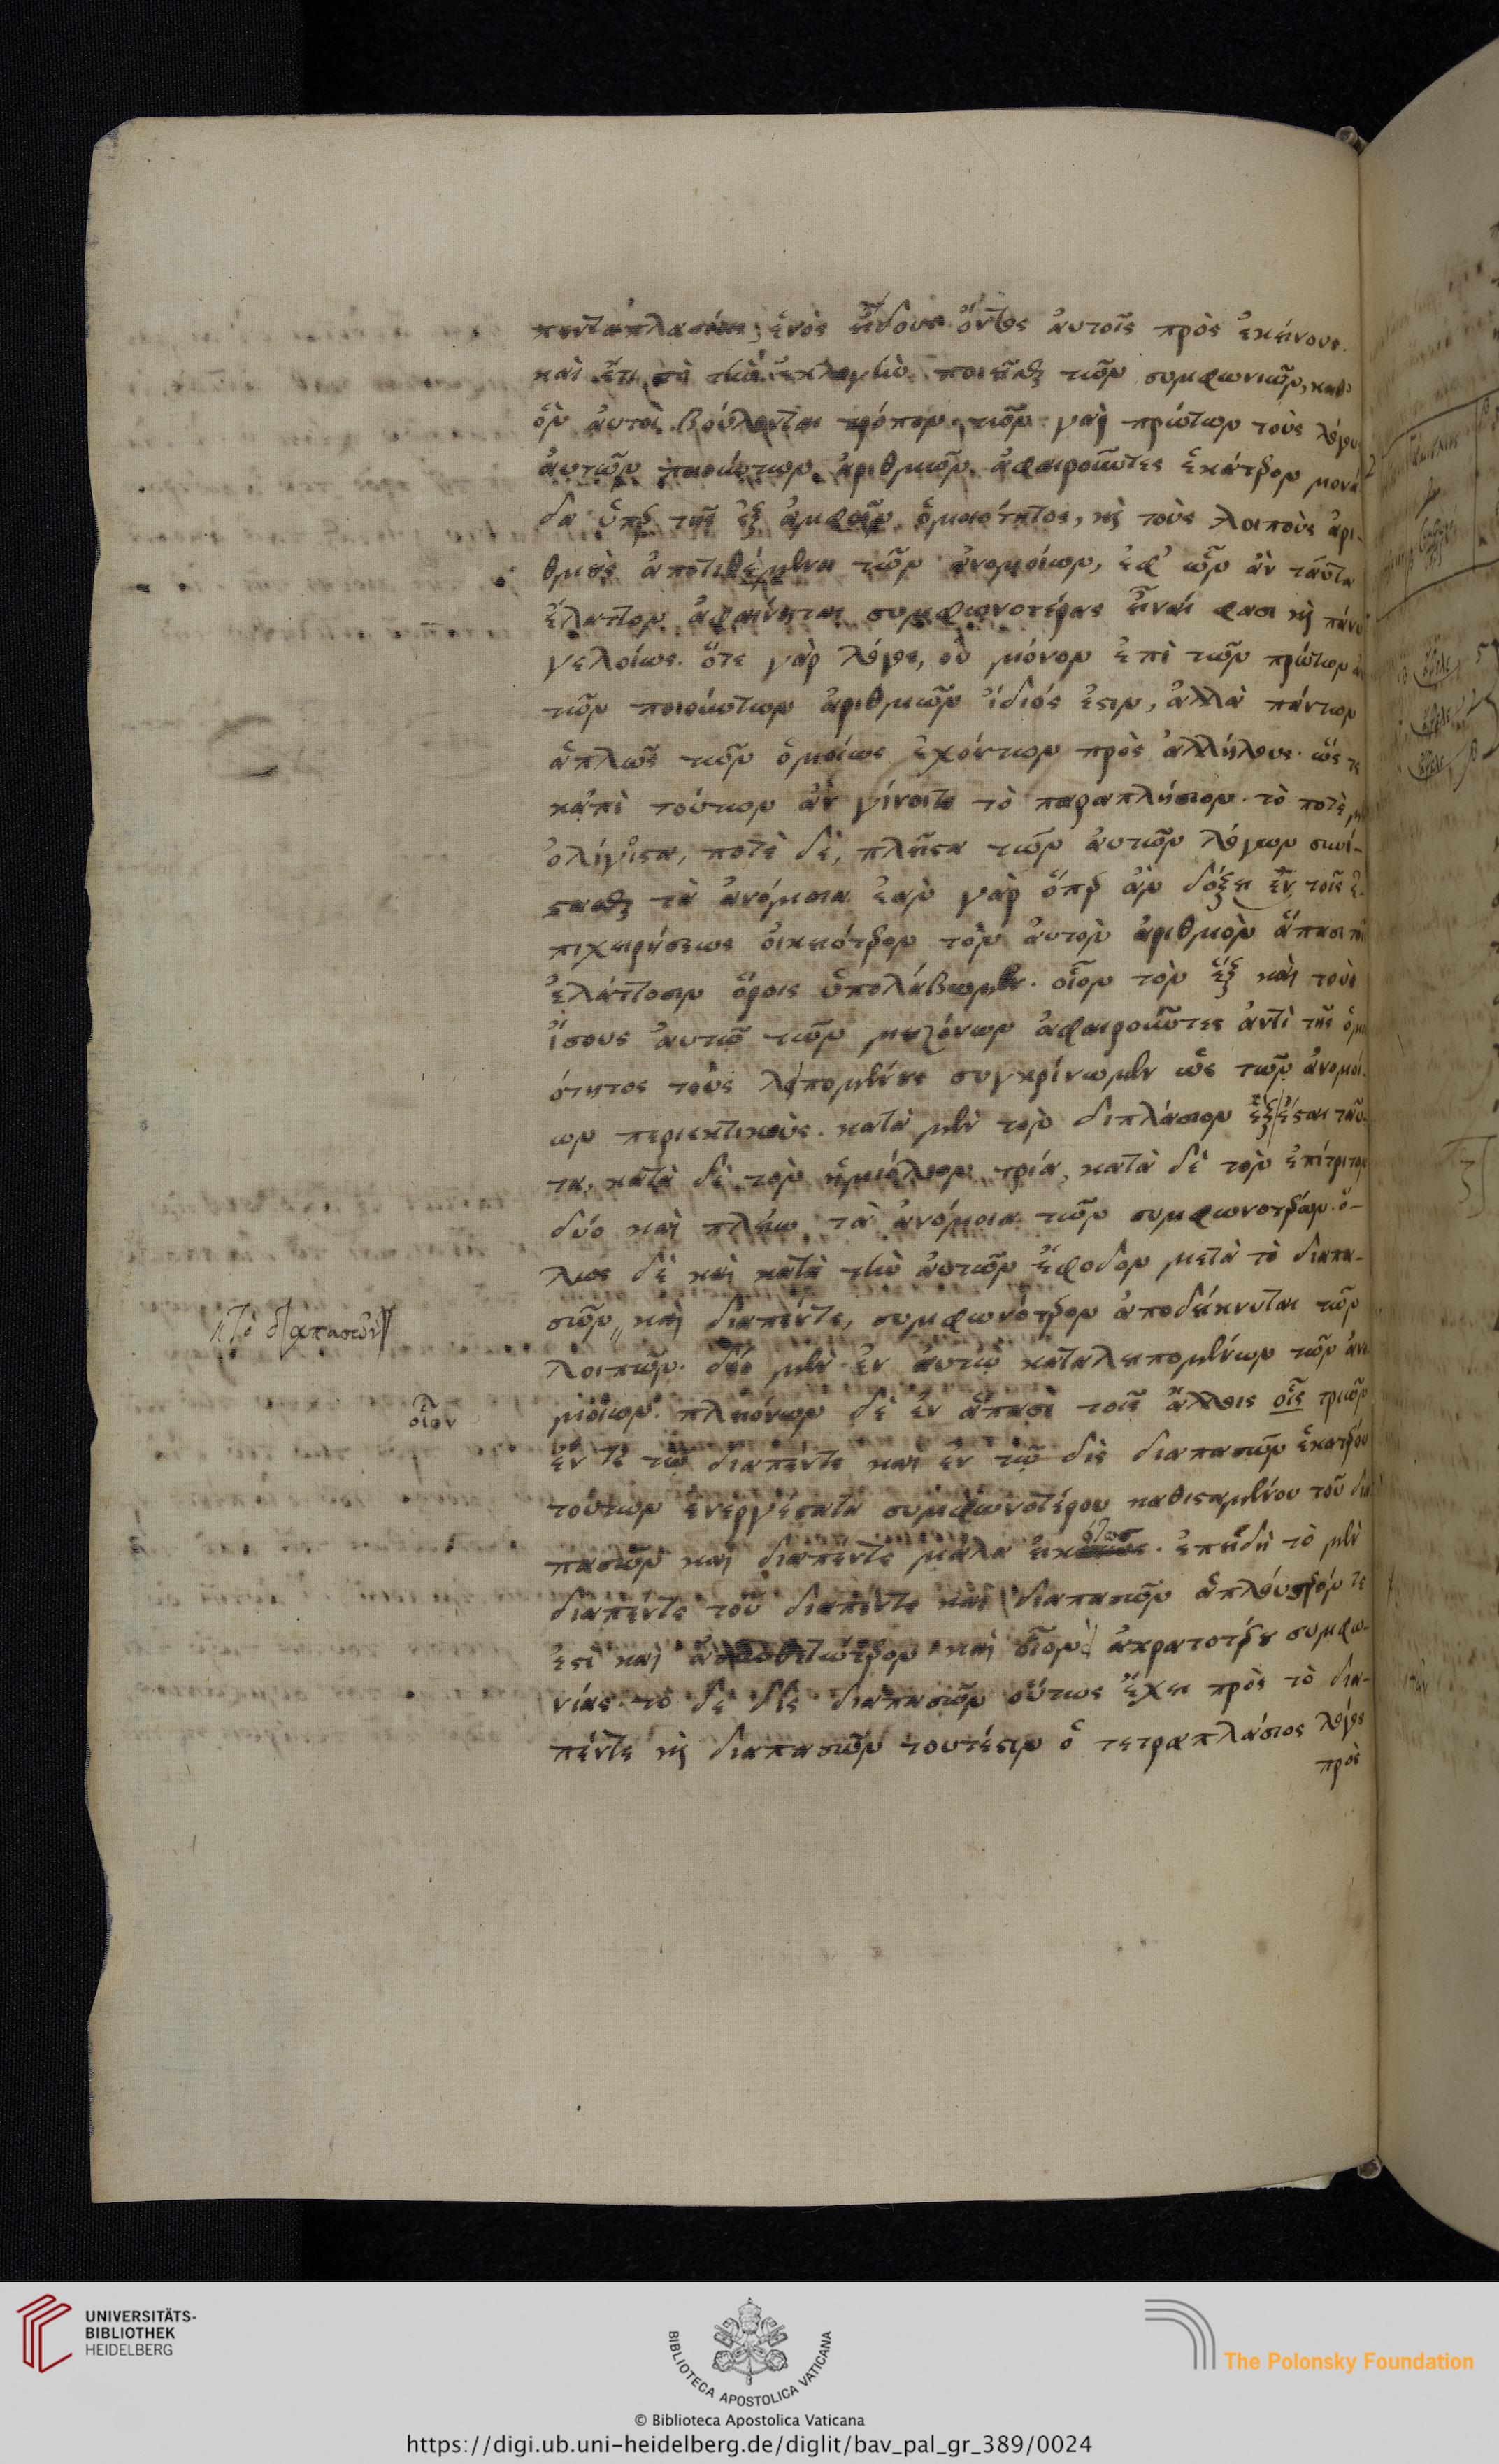 πενταπλασίου, ἑνὸς εἴδους ὄντος αὐτοῖς πρὸς ἐκείνους.
καὶ ἔτι τὸ τὴν ἐκλογὴν ποιεῖσθαι τῶν συμφωνιῶν, καθ'
ὃν αὐτοὶ βούλονται τρόπον. τῶν γὰρ πρώτων τοὺς λόγου
αὐτῶν ποιούντων ἀριθμῶν ἀφαιροῦντες ἑκάτερον μονά
δα ὑπὲρ τῆς ἐξ ἀμφοῖν ὁμοιότητος, καὶ τοὺς λοιποὺς ἀρι-
θμοὺς ἀποτιθέμενοι τῶν ἀνομοίων, ἐφ' ὧν ἂν ταῦτα
ἔλαττον ἀφαίνηται συμφωνοτέρας εἶναί φασι καὶ πάνυ
γελοίως. ὅτε γὰρ λόγος, οὐ μόνον ἐπὶ τῶν πρώτων
τῶν ποιούντων ἀριθμῶν ἴδιός ἐστιν, ἀλλὰ πάντων
ἁπλῶς τῶν ὁμοίως ἐχόντων πρὸς ἀλλήλους. ὥς τε
κἀπὶ τούτων ἂν γίνοιτο τὸ παραπλήσιον. τὸ ποτὲ
ὀλίγιστα, ποτὲ δὲ, πλεῖστα τῶν αὐτῶν λόγων συνί-
στασθαι τὰ ἀνόμοια. ἐὰν γὰρ ὅπερ ἂν δόξῃ ἐν τοῖς ἐ-
πιχειρήσεως οἰκειότερον τὸν αὐτὸν ἀριθμὸν ἅπασι
ἐλάττοσιν ὅροις ὑπολάβωμεν. οἷον τὸν ἓξ καὶ τοὺς
ἴσους αὐτῷ τῶν μειζόνων ἀφαιροῦντες ἀντὶ τῆς ὁμ
οιότητος τοὺς λειπομένους συγκρίνωμεν ὡς τῶν ἀνομοί-
ων περιεκτικούς. κατὰ μὲν τὸν διπλάσιον ἓξ ἔσται ταῦ-
τα, κατὰ δὲ τὸν ἡμιόλιον, τρία, κατὰ δὲ τὸν ἐπίτριτον
δύο καὶ πλείω τὰ ἀνόμοια τῶν συμφωνοτέρων. ὅ-
λως δὲ καὶ κατὰ τὴν αὐτῶν ἔφοδον μετὰ τὸ διαπα-
σῶν καὶ διαπέντε, συμφωνότερον ἀποδείκνυται τῶν
καὶ τὸ διαπασῶν
λοιπῶν. δύο μὲν ἐν αὐτῷ καταλειπομένων τῶν ἀνο
μοίων. πλειόνων δὲ ἐν ἅπασι τοῖς ἄλλοις οἷς τριῶν
οἷον
ἔν τε τῷ διαπέντε καὶ ἐν τῷ δὶς διαπασῶν ἑκατέρου
τούτων ἐνεργέστατα συμφωνοτέρου καθισταμένου τοῦ δια
πασῶν καὶ διαπέντε μάλα εἰκότως. ἐπειδὴ τὸ μὲν
διαπέντε τοῦ διαπέντε καὶ διαπασῶν ἁπλούστερόν τε
ἐστὶ καὶ ἀσυνθετώτερον καὶ οἷον ἀκρατοτέρου συμφω-
νίας. τὸ δὲ δὶς διαπασῶν οὕτως ἔχει πρὸς τὸ δια-
πέντε καὶ διαπασῶν τουτέστιν ὁ τετραπλάσιος λόγος
πρὸς
UNIVERSITÄTS-
BIBLIOTHEK
HEIDELBERG
BIBLIOTECA APOSTOLICA VATICANA
The Polonsky Foundation
© Biblioteca Apostolica Vaticana
https://digi.ub.uni-heidelberg.de/diglit/bav_pal_gr_389/0024